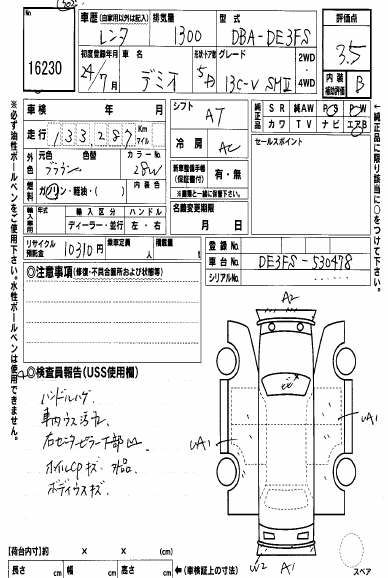 16230
車歴 (自家用以外は記入) 排気量 型式 評価点
レンタ 1300 DBA-DE3FS 3.5
初度登録年月 車名 形状・ドア数 グレード
24/7月 デミオ 5D 13C-V SMII 2WD 4WD
内装補助評価 B
車検 年 月
走行 133,287 Km マイル
シフト AT
冷房 AC
純正品 SR 純AW PS PW
カワ TV ナビ エアB
セールスポイント
外色 元色 色替 カラーNo.
ブラウン 28W
燃料 ガソリン・軽油・( ) 内装色
新車整備手帳(保証書付) 有・無
※真横に一緒に添付
輸入車 年式 輸入区分 ハンドル
ディーラー・並行 左・右
名義変更期限
月 日
リサイクル預託金 10310円 乗車定員 人 積載量 t
登録No.
車台No. DE3FS-530478
シリアルNo.
◎注意事項(修復・不具合箇所および状態等)
◎検査員報告(USS使用欄)
ハンドルハゲ
車内ウス汚れ
右センターピラー下部凹
ホイルCPキズ 欠品
ボディウスキズ
A2
UA1
UA1
W2 A1
スペア
[荷台内寸]約 × × (cm)
長さ cm 幅 cm 高さ cm ←(車検証上の寸法)
※必ず油性ボールペンをご使用下さい。水性ボールペンは使用できません。
※純正品に限り該当に○をつけて下さい。